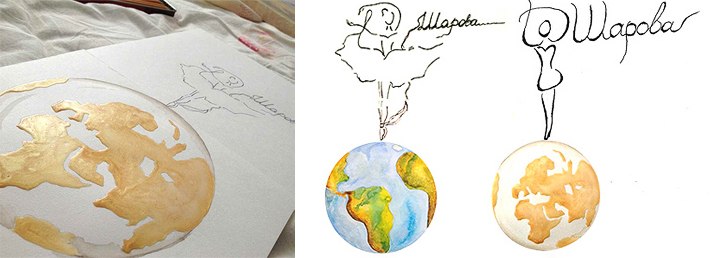 Шарова
Шарова
Шарова